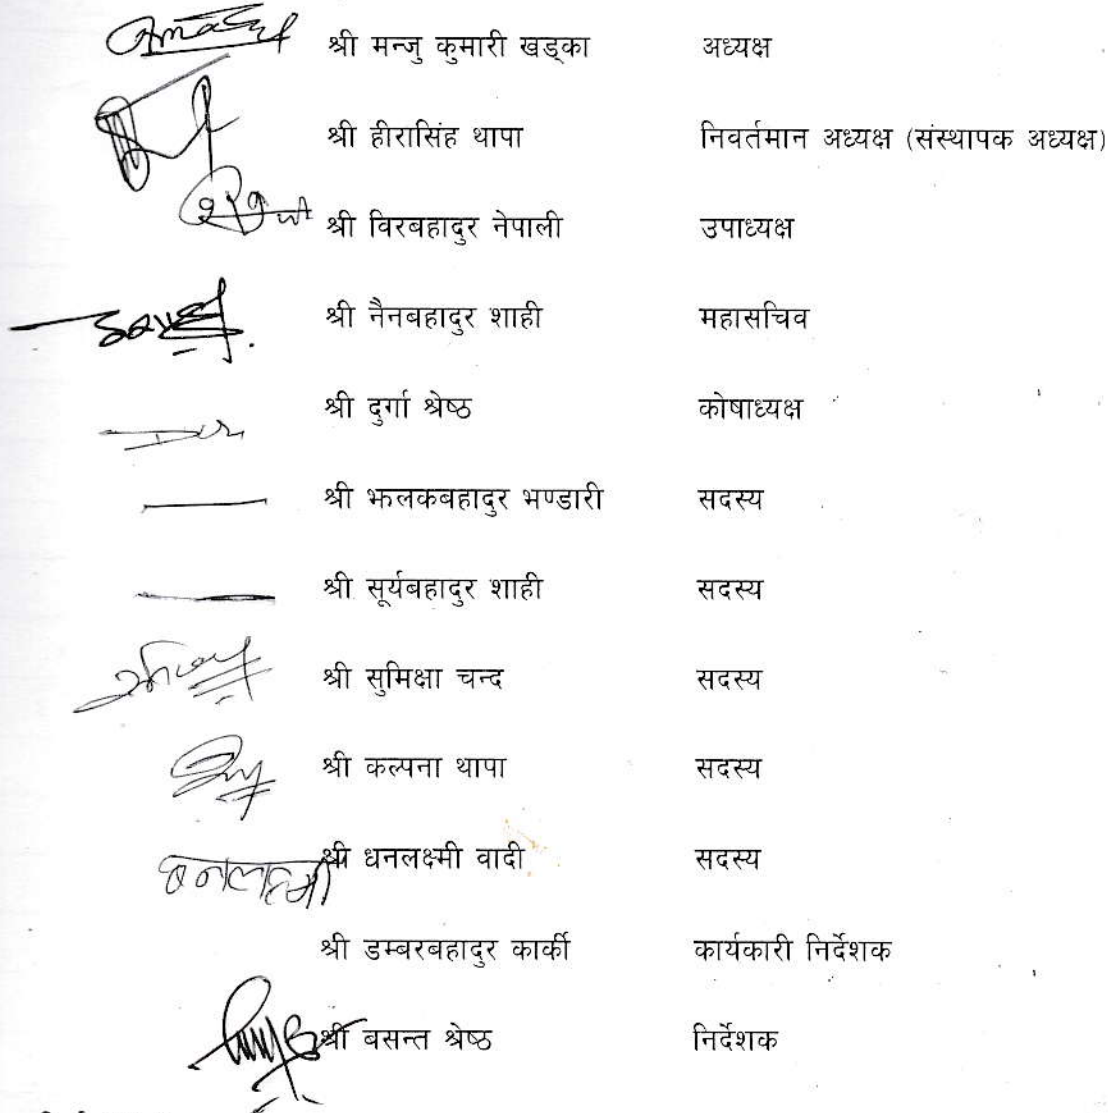 श्री मन्जु कुमारी खड्का अध्यक्ष
श्री हीरासिंह थापा निवर्तमान अध्यक्ष (संस्थापक अध्यक्ष)
श्री विरबहादुर नेपाली उपाध्यक्ष
श्री नैनबहादुर शाही महासचिव
श्री दुर्गा श्रेष्ठ कोषाध्यक्ष
श्री झलकबहादुर भण्डारी सदस्य
श्री सूर्यबहादुर शाही सदस्य
श्री सुमिक्षा चन्द सदस्य
श्री कल्पना थापा सदस्य
धनलक्ष्मी श्री धनलक्ष्मी वादी सदस्य
श्री डम्बरबहादुर कार्की कार्यकारी निर्देशक
श्री बसन्त श्रेष्ठ निर्देशक